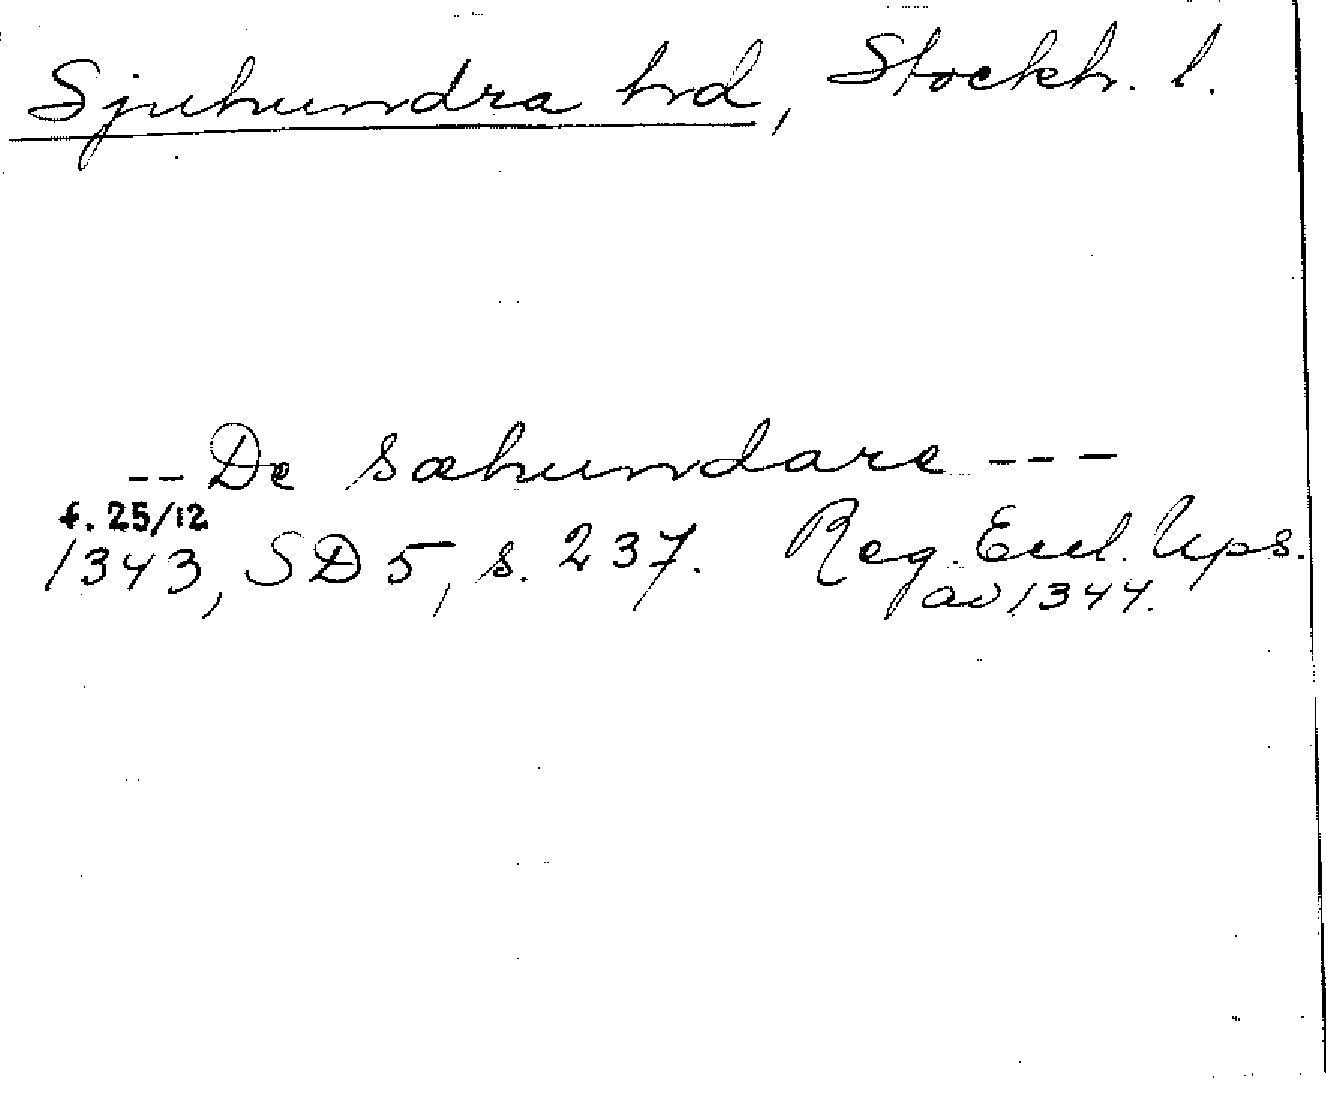 Sjuhundra hd, Stockh. l.
-- De sæhundare ---
f. 25/12
1343, SD 5, s. 237. Reg. Eccl. Ups.
av 1344.